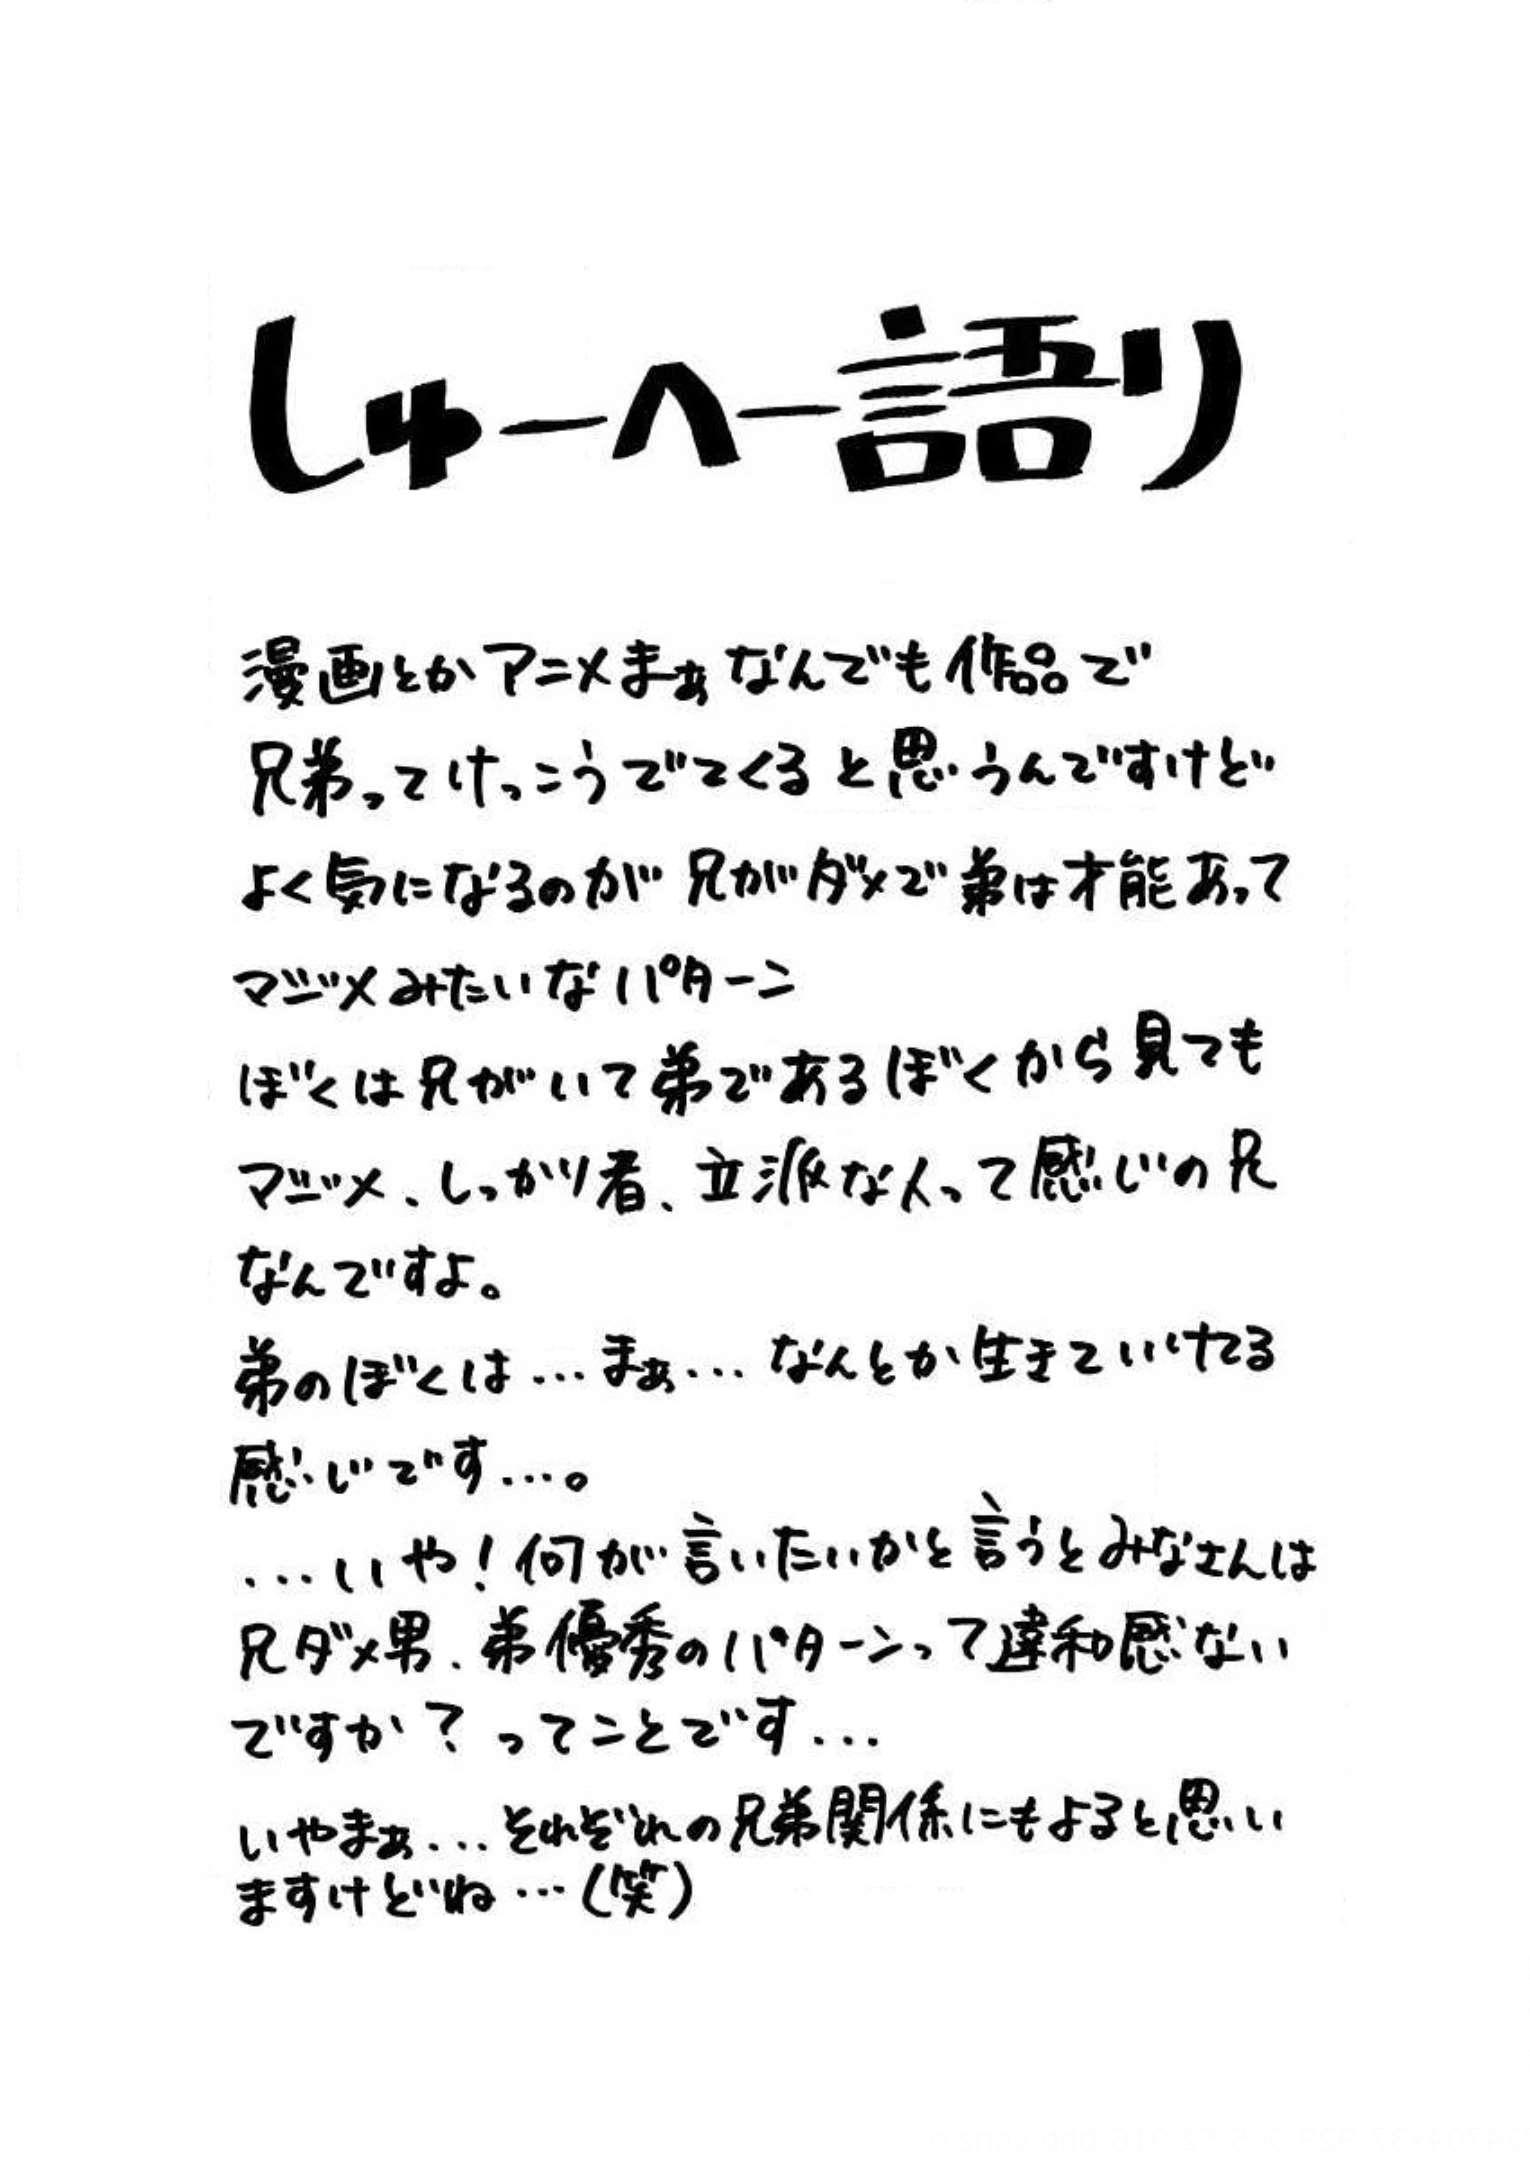 しゅーへー語り
漫画とかアニメまぁなんでも作品で
兄弟ってけっこうでてくると思うんですけど
よく気になるのが兄がダメで弟は才能あって
マジメみたいなパターン
ぼくは兄がいて弟であるぼくから見ても
マジメ、しっかり者、立派な人って感じの兄
なんですよ。
弟のぼくは…まぁ…なんとか生きていけてる
感じです…。
…いや！何が言いたいかと言うとみなさんは
兄ダメ男、弟優秀のパターンって違和感ない
ですか？ってことです…
いやまぁ…それぞれの兄弟関係にもよると思い
ますけどね…(笑)